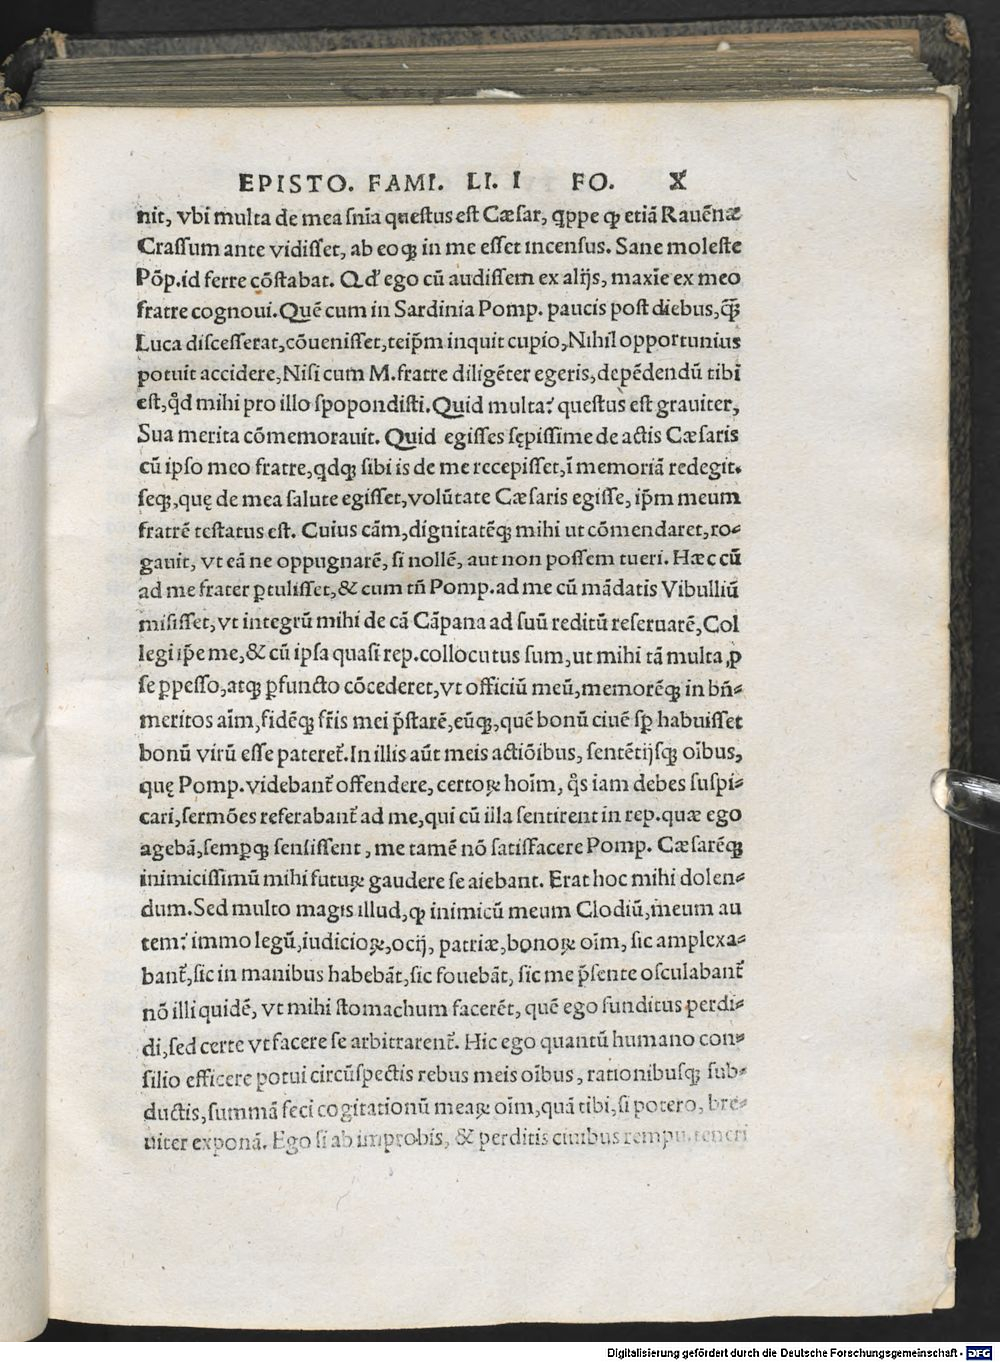 EPISTO. FAMI. LI. I FO. X
nit, vbi multa de mea sn̄ia questus est Cæsar, qppe ꝙ etiā Rauēnæ
Crassum ante vidisset, ab eoqꝫ in me esset incensus. Sane moleste
Pōp.id ferre cōstabat. Qd' ego cū audissem ex alijs, maxīe ex meo
fratre cognoui.Quē cum in Sardinia Pomp. paucis post diebus,q̄ꝫ
Luca discesserat,cōuenisset,teip̄m inquit cupio,Nihil opportunius
potuit accidere,Nisi cum M.fratre diligēter egeris,depēdendū tibi
est,qd̉ mihi pro illo spopondisti.Quid multa? questus est grauiter,
Sua merita cōmemorauit. Quid egisses sępissime de actis Cæsaris
cū ipso meo fratre,qdqꝫ sibi is de me recepisset,ī memoriā redegit.
seqꝫ,quę de mea salute egisset,volūtate Cæsaris egisse, ip̄m meum
fratrē testatus est. Cuius cām,dignitatēqꝫ mihi ut cōmendaret,ro⸗
gauit, vt eā ne oppugnarē, si nollē, aut non possem tueri. Hæc cū
ad me frater ꝑtulisset,& cum tn̄ Pomp.ad me cū mādatis Vibulliū
misisset,vt integrū mihi de cā Cāpana ad suū reditū reseruarē,Col
legi ip̄e me,& cū ipsa quasi rep.collocutus sum,ut mihi tā multa ꝓ
se ꝑpesso,atqꝫ ꝑfuncto cōcederet,vt officiū meū,memorēqꝫ in bn̄⸗
meritos aīm,fidēqꝫ fr̄is mei p̄starē,eūqꝫ,quē bonū ciuē sꝑ habuisset
bonū virū esse pateret̄.In illis aūt meis actiōibus, sentētijsqꝫ oībus,
quę Pomp.videbant̄ offendere, certoꝝ hoīm, qͦs iam debes suspi⸗
cari,sermōes referabant̄ ad me,qui cū illa sentirent in rep.quæ ego
agebā,semꝑqꝫ sensissent , me tamē nō satisfacere Pomp. Cæsarēqꝫ
inimicissimū mihi futuꝝ gaudere se aiebant. Erat hoc mihi dolen⸗
dum.Sed multo magis illud,ꝙ inimicū meum Clodiū,meum au
tem? immo legū,iudicioꝝ,ocij, patriæ,bonoꝝ oīm, sic amplexa⸗
bant̄,sic in manibus habebāt,sic fouebāt, sic me p̄sente osculabant̄
nō illi quidē, vt mihi stomachum facerēt, quē ego funditus perdi⸗
di,sed certe vt facere se arbitrarent̄. Hic ego quantū humano con⸗
silio efficere potui circūspectis rebus meis oībus, rationibusqꝫ sub⸗
ductis,summā feci cogitationū meaꝝ oīm,quā tibi,si potero, bre⸗
uiter exponā. Ego si ab improbis, & perditis ciuibus rempu.teneri
Digitalisierung gefördert durch die Deutsche Forschungsgemeinschaft - DFG